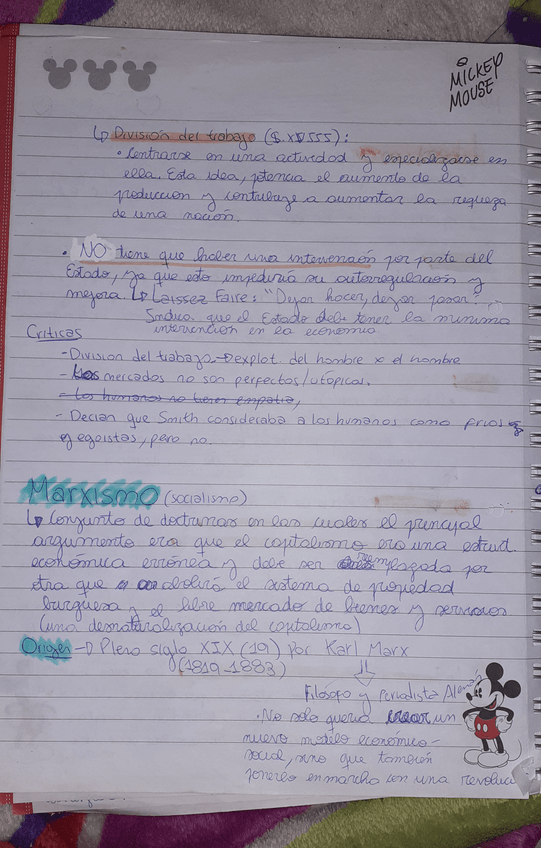 MICKEY
MOUSE
↳ División del trabajo (S.XVIII):
• Centrarse en una actividad y especializarse en
ella. Esta idea, potencia el aumento de la
producción y contribuye a aumentar la riqueza
de una nación.
• NO tiene que haber una intervención por parte del
Estado, ya que esto impediría su autorregulación y
mejora. ↳ Laissez Faire: "Dejar hacer, dejar pasar".
Indica que el Estado debe tener la mínima
intervención en la economía
Críticas
- División del trabajo → explot. del hombre x el hombre
- Los mercados no son perfectos/utópicos.
- Los humanos no tienen empatía,
- Decían que Smith consideraba a los humanos como fríos
y egoístas, pero no.
Marxismo (socialismo)
↳ Conjunto de doctrinas en las cuales el principal
argumento era que el capitalismo era una estruct.
económica errónea y debe ser reemplazada por
otra que abolirá el sistema de propiedad
burguesa y el libre mercado de bienes y servicios
(una desnaturalización del capitalismo)
Origen → Pleno siglo XIX (19) por Karl Marx
(1819-1883)
Filósofo y Periodista Alemán
• No solo quería crear un
nuevo modelo económico-
social, sino que también
ponerlo en marcha con una revoluc